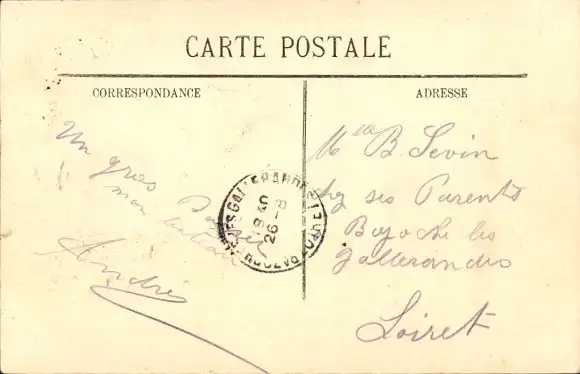 CARTE POSTALE
CORRESPONDANCE
ADRESSE
Un gros
mon
André
Mlle B. Sevin
chez ses Parents
Bazoche les
Gallerandes
Loiret
18 30
26 -8